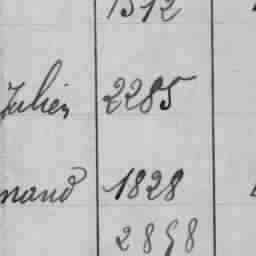 1312
Julien 2285
nand 1828
2898